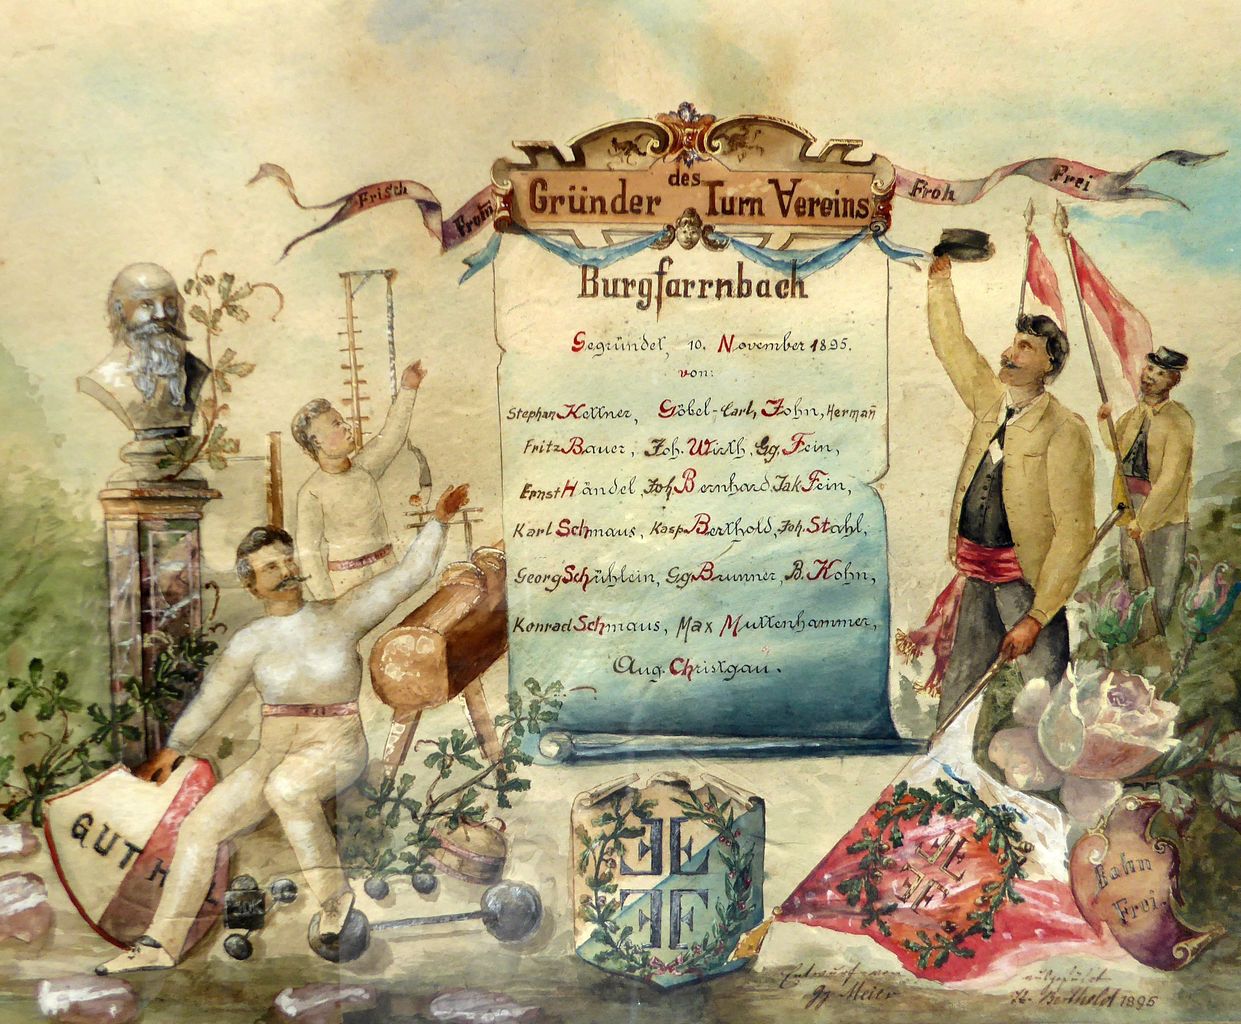 Frisch
Fromm
Froh
Frei
des
Gründer Turn Vereins
Burgfarrnbach
Gegründet, 10. November 1895.
von:
Stephan Kellner, Göbel-Carl, John, Hermañ
Fritz Bauer, Joh. Wirth, Gg. Fein,
Ernst Händel, Joh Bernhard, Jak Fein,
Karl Schmaus, Kasp. Berthold, Joh. Stahl,
Georg Schühlein, Gg Brunner, B. Kohn,
Konrad Schmaus, Max Muttenhammer,
Aug. Christgau.
GUT H
FF
FF
FF
FF
Bahn
Frei.
Entwurf von
Gg. Meier
ausgeführt
K. Berthold 1896